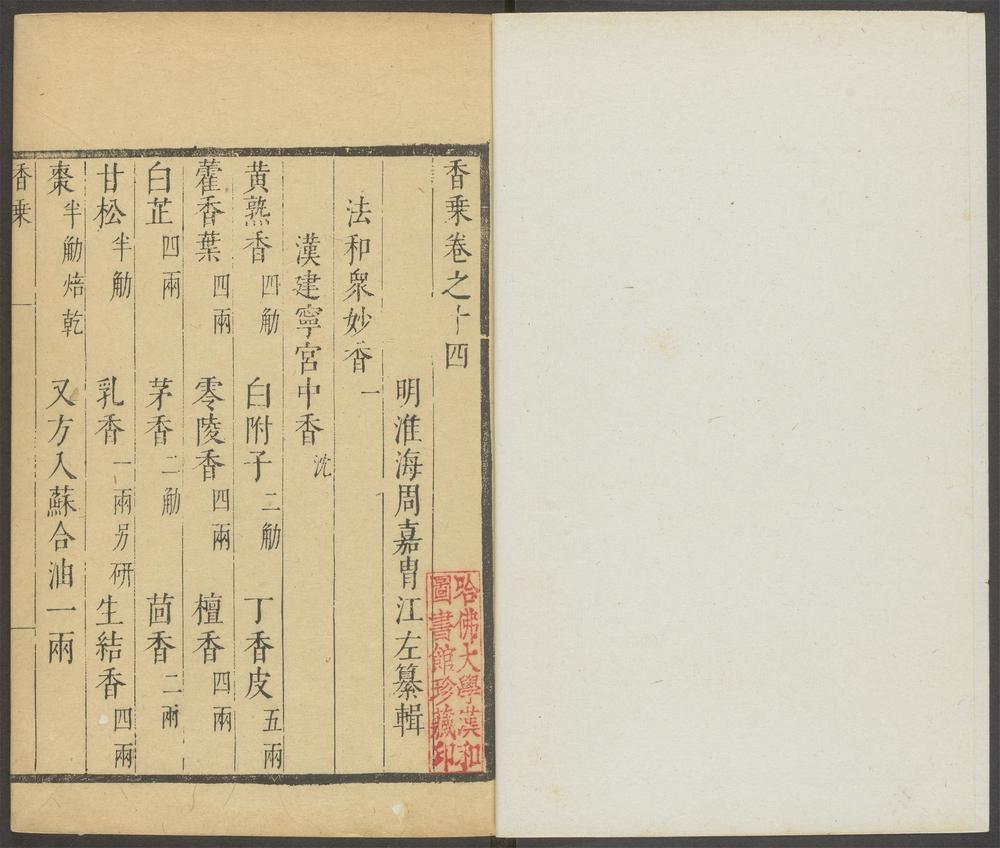 香乗卷之十四
明淮海周嘉胄江左纂輯
法和衆妙香一
漢建寧宮中香沈
黄熟香四觔 白附子二觔 丁香皮五兩
藿香葉四兩 零陵香四兩 檀香四兩
白芷四兩 茅香二觔 茴香二兩
甘松半觔 乳香一兩另研 生結香四兩
棗半觔焙乾 又方入蘇合油一兩
香乗
哈佛大學漢和
圖書館珍藏印